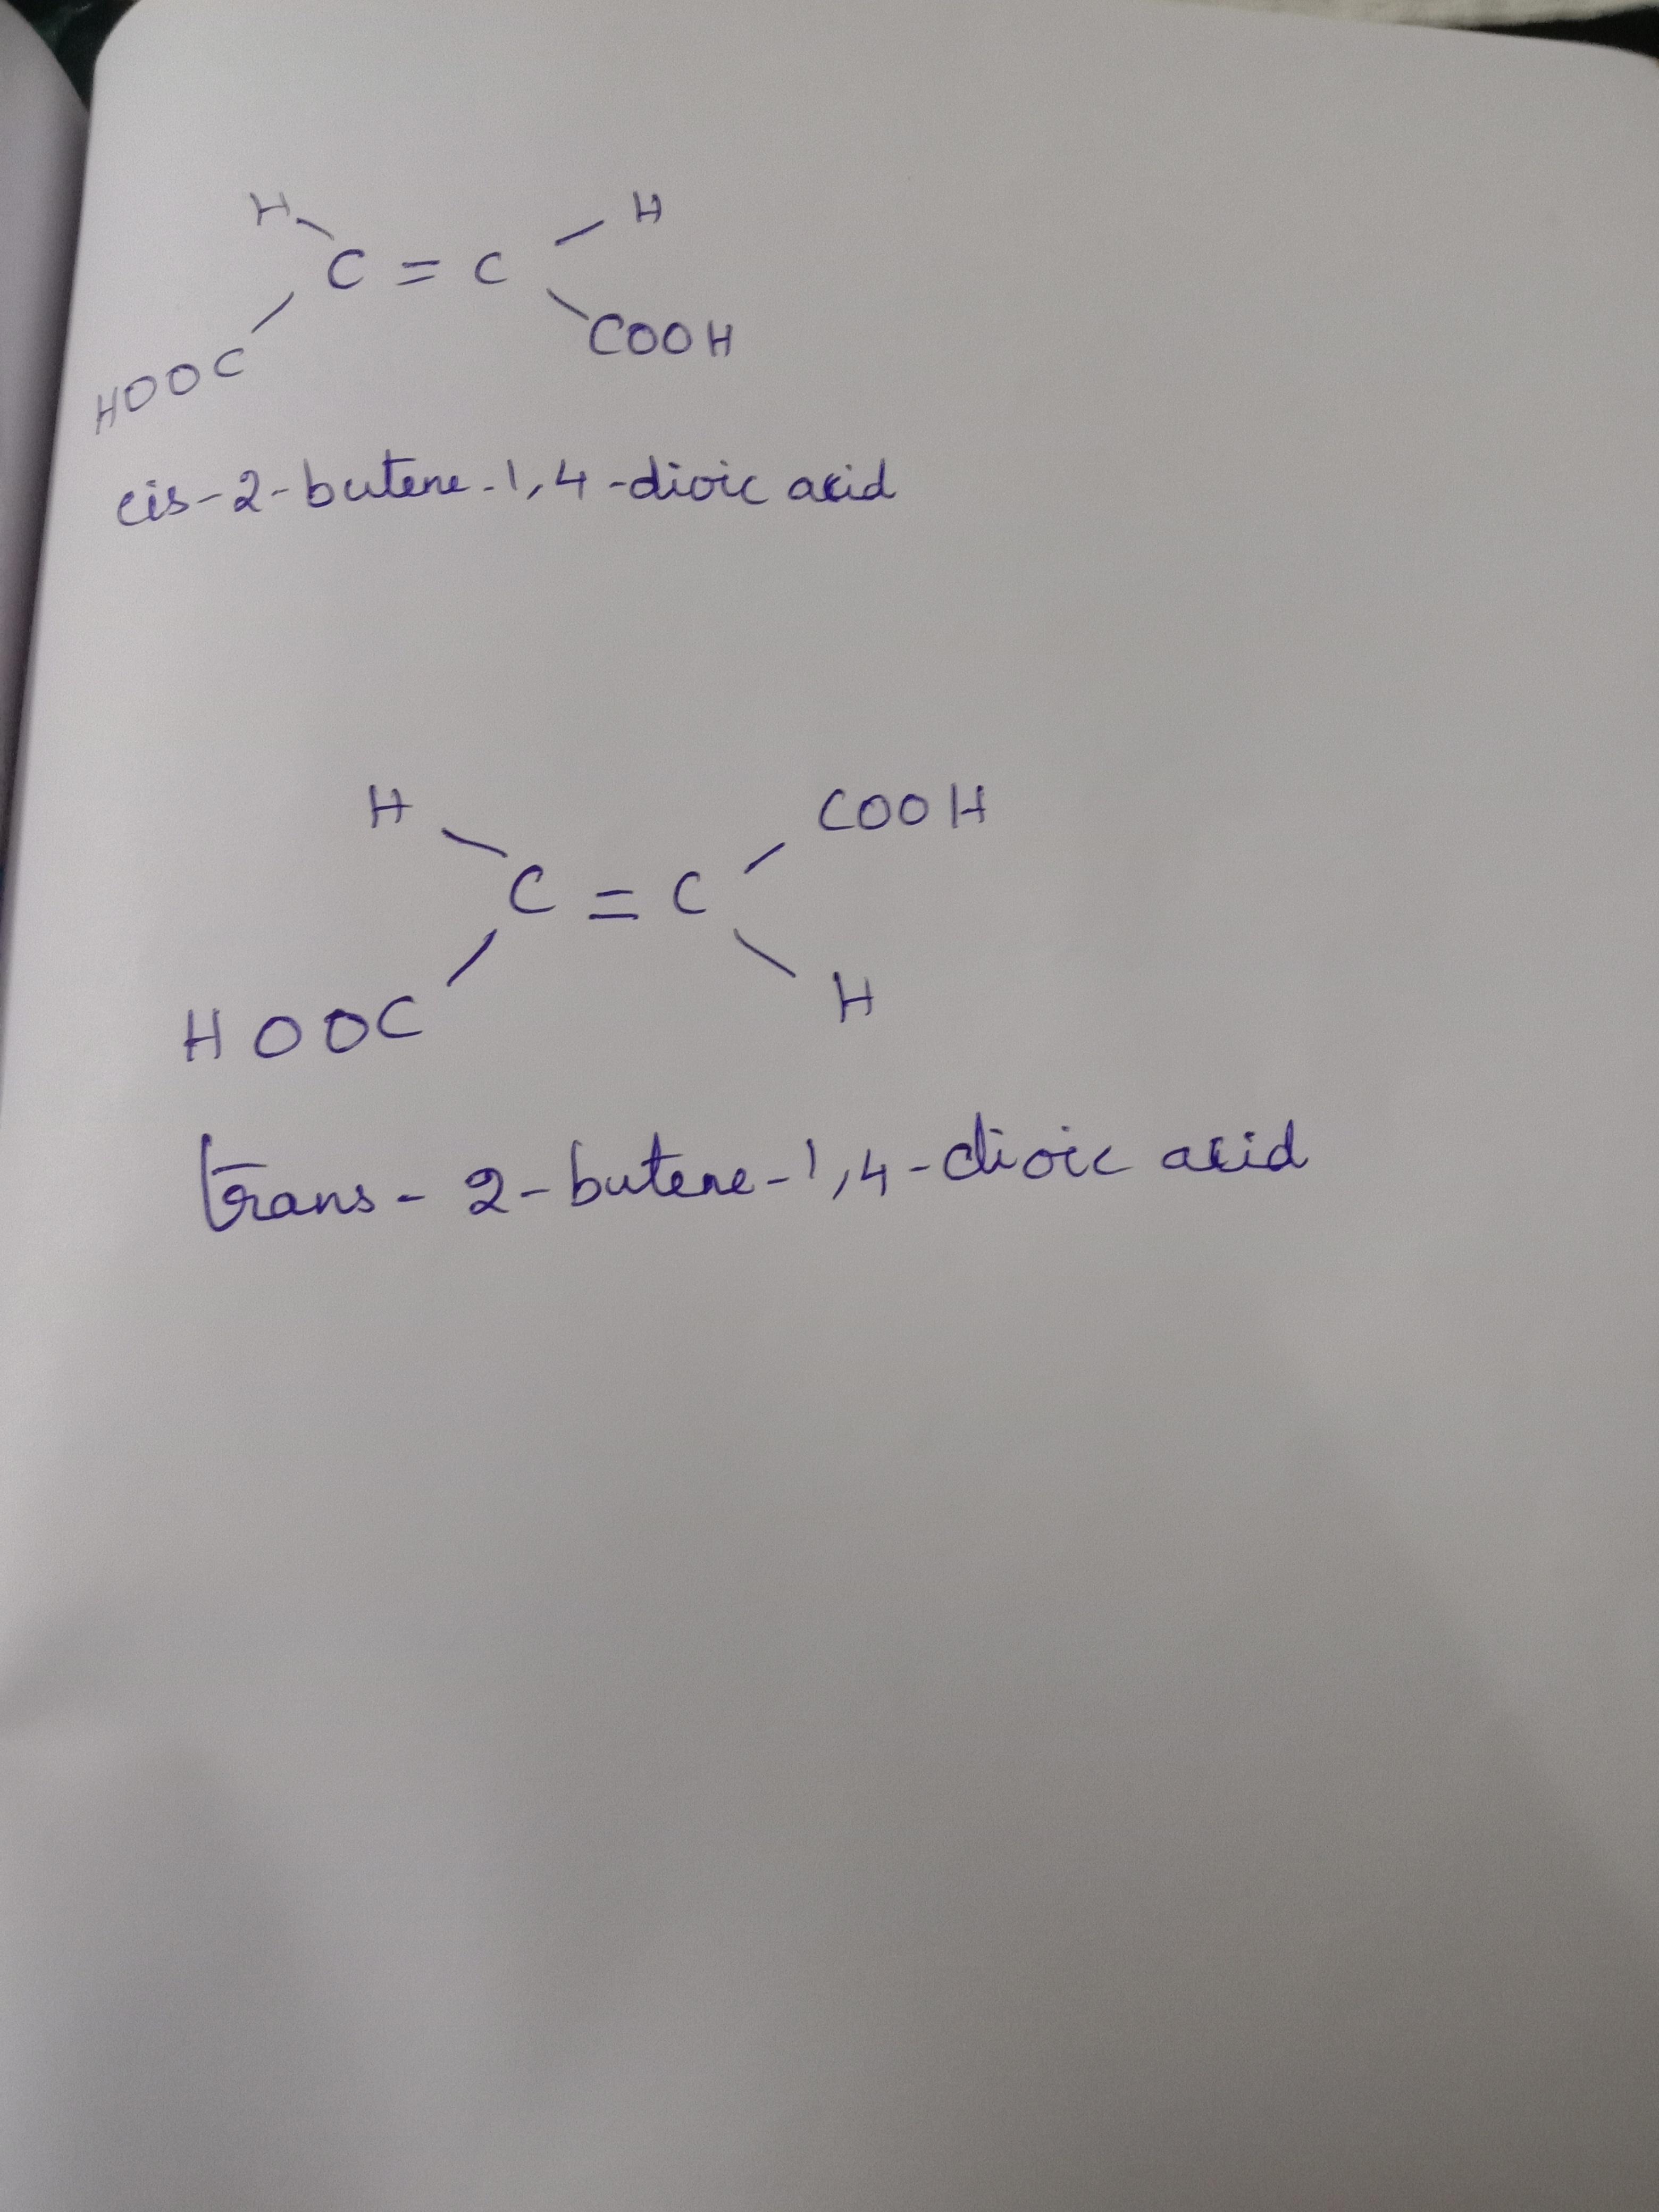 H H
C = C
HOOC COOH
cis-2-butene-1,4-dioic acid
H COOH
C = C
HOOC H
trans-2-butene-1,4-dioic acid